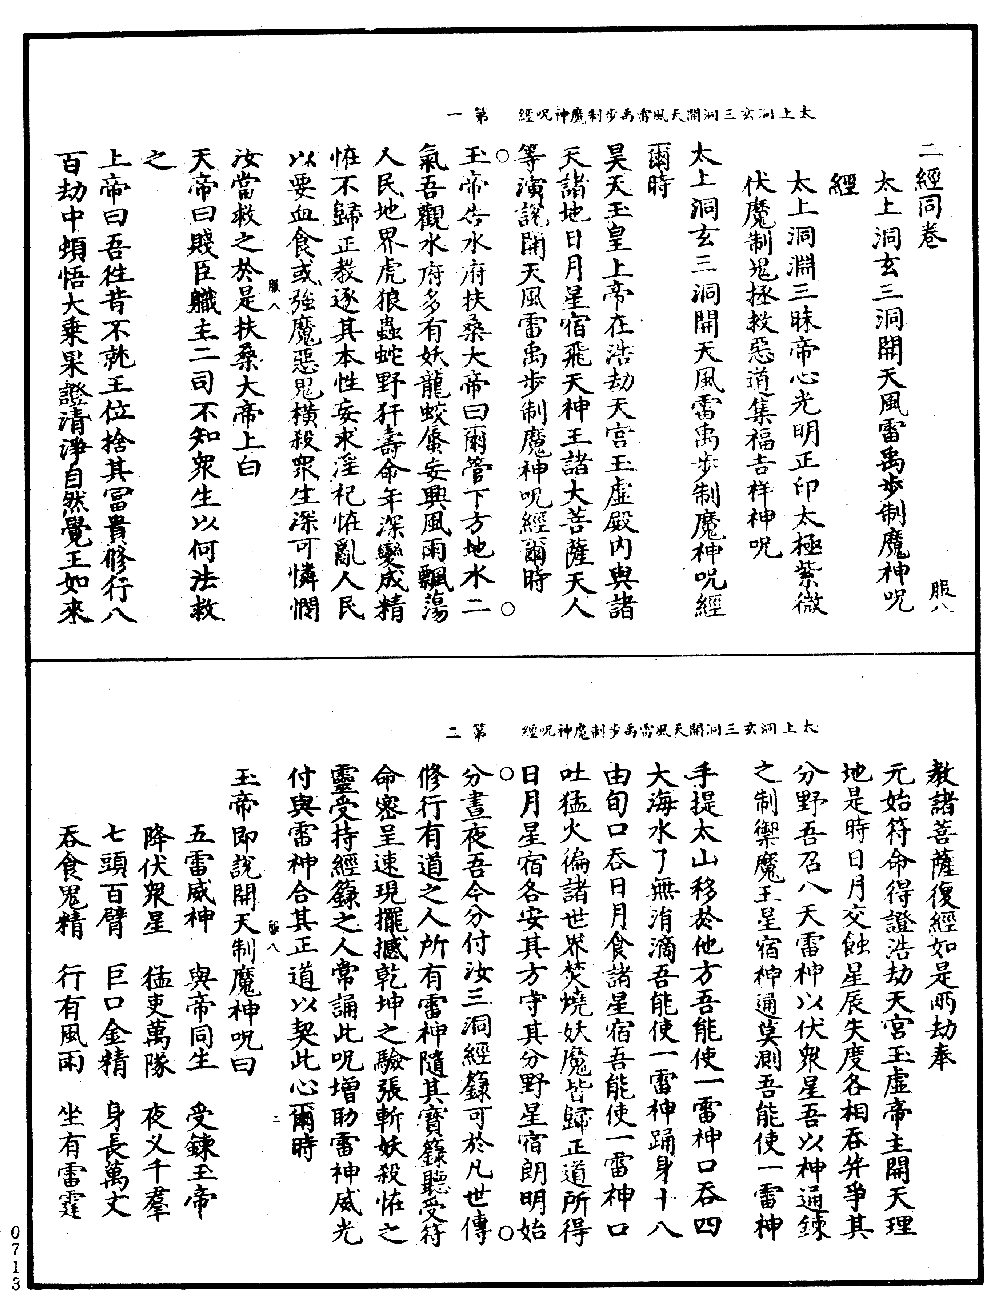 太上洞玄三洞開天風雷禹步制魔神呪經　第一
二經同卷　服八
太上洞玄三洞開天風雷禹步制魔神呪
經
太上洞淵三昧帝心光明正印太極紫微
伏魔制鬼拯救惡道集福吉祥神呪
太上洞玄三洞開天風雷禹步制魔神呪經
爾時
昊天玉皇上帝在浩劫天宫玉虛殿内與諸
天諸地日月星宿飛天神王諸大菩薩天人
等演說開天風雷禹步制魔神呪經爾時
玉帝告水府扶桑大帝曰爾管下方地水二
氣吾觀水府多有妖龍蛟蜃妄興風雨飄蕩
人民地界虎狼蟲蛇野犴壽命年深變成精
恠不歸正教逐其本性妄求淫祀恠亂人民
以要血食或強魔惡鬼橫殺衆生深可憐憫
服八
汝當救之於是扶桑大帝上白
天帝曰賤臣職主二司不知衆生以何法救
之
上帝曰吾徃昔不就王位捨其冨貴修行八
百劫中頓悟大乗果證清淨自然覺王如來
太上洞玄三洞開天風雷禹步制魔神呪經　第二
教諸菩薩復經如是兩劫奉
元始符命得證浩劫天宫玉虛帝主開天理
地是時日月交蝕星辰失度各相吞并爭其
分野吾召八天雷神以伏衆星吾以神通鍊
之制禦魔王星宿神通莫測吾能使一雷神
手提太山移於他方吾能使一雷神口吞四
大海水了無消滴吾能使一雷神踊身十八
由旬口吞日月食諸星宿吾能使一雷神口
吐猛火徧諸世界焚燒妖魔皆歸正道所得
日月星宿各安其方守其分野星宿朗明始
分晝夜吾今分付汝三洞經籙可於凡世傳
修行有道之人所有雷神隨其寳籙聽受符
命密呈速現擺撼乾坤之驗張斬妖殺恠之
靈受持經籙之人常誦此呪增助雷神威光
付與雷神合其正道以契此心爾時
服八　二
玉帝即說開天制魔神呪曰
五雷威神　與帝同生　受鍊玉帝
降伏衆星　猛吏萬隊　夜乂千羣
七頭百臂　巨口金精　身長萬丈
吞食鬼精　行有風雨　坐有雷霆
0713